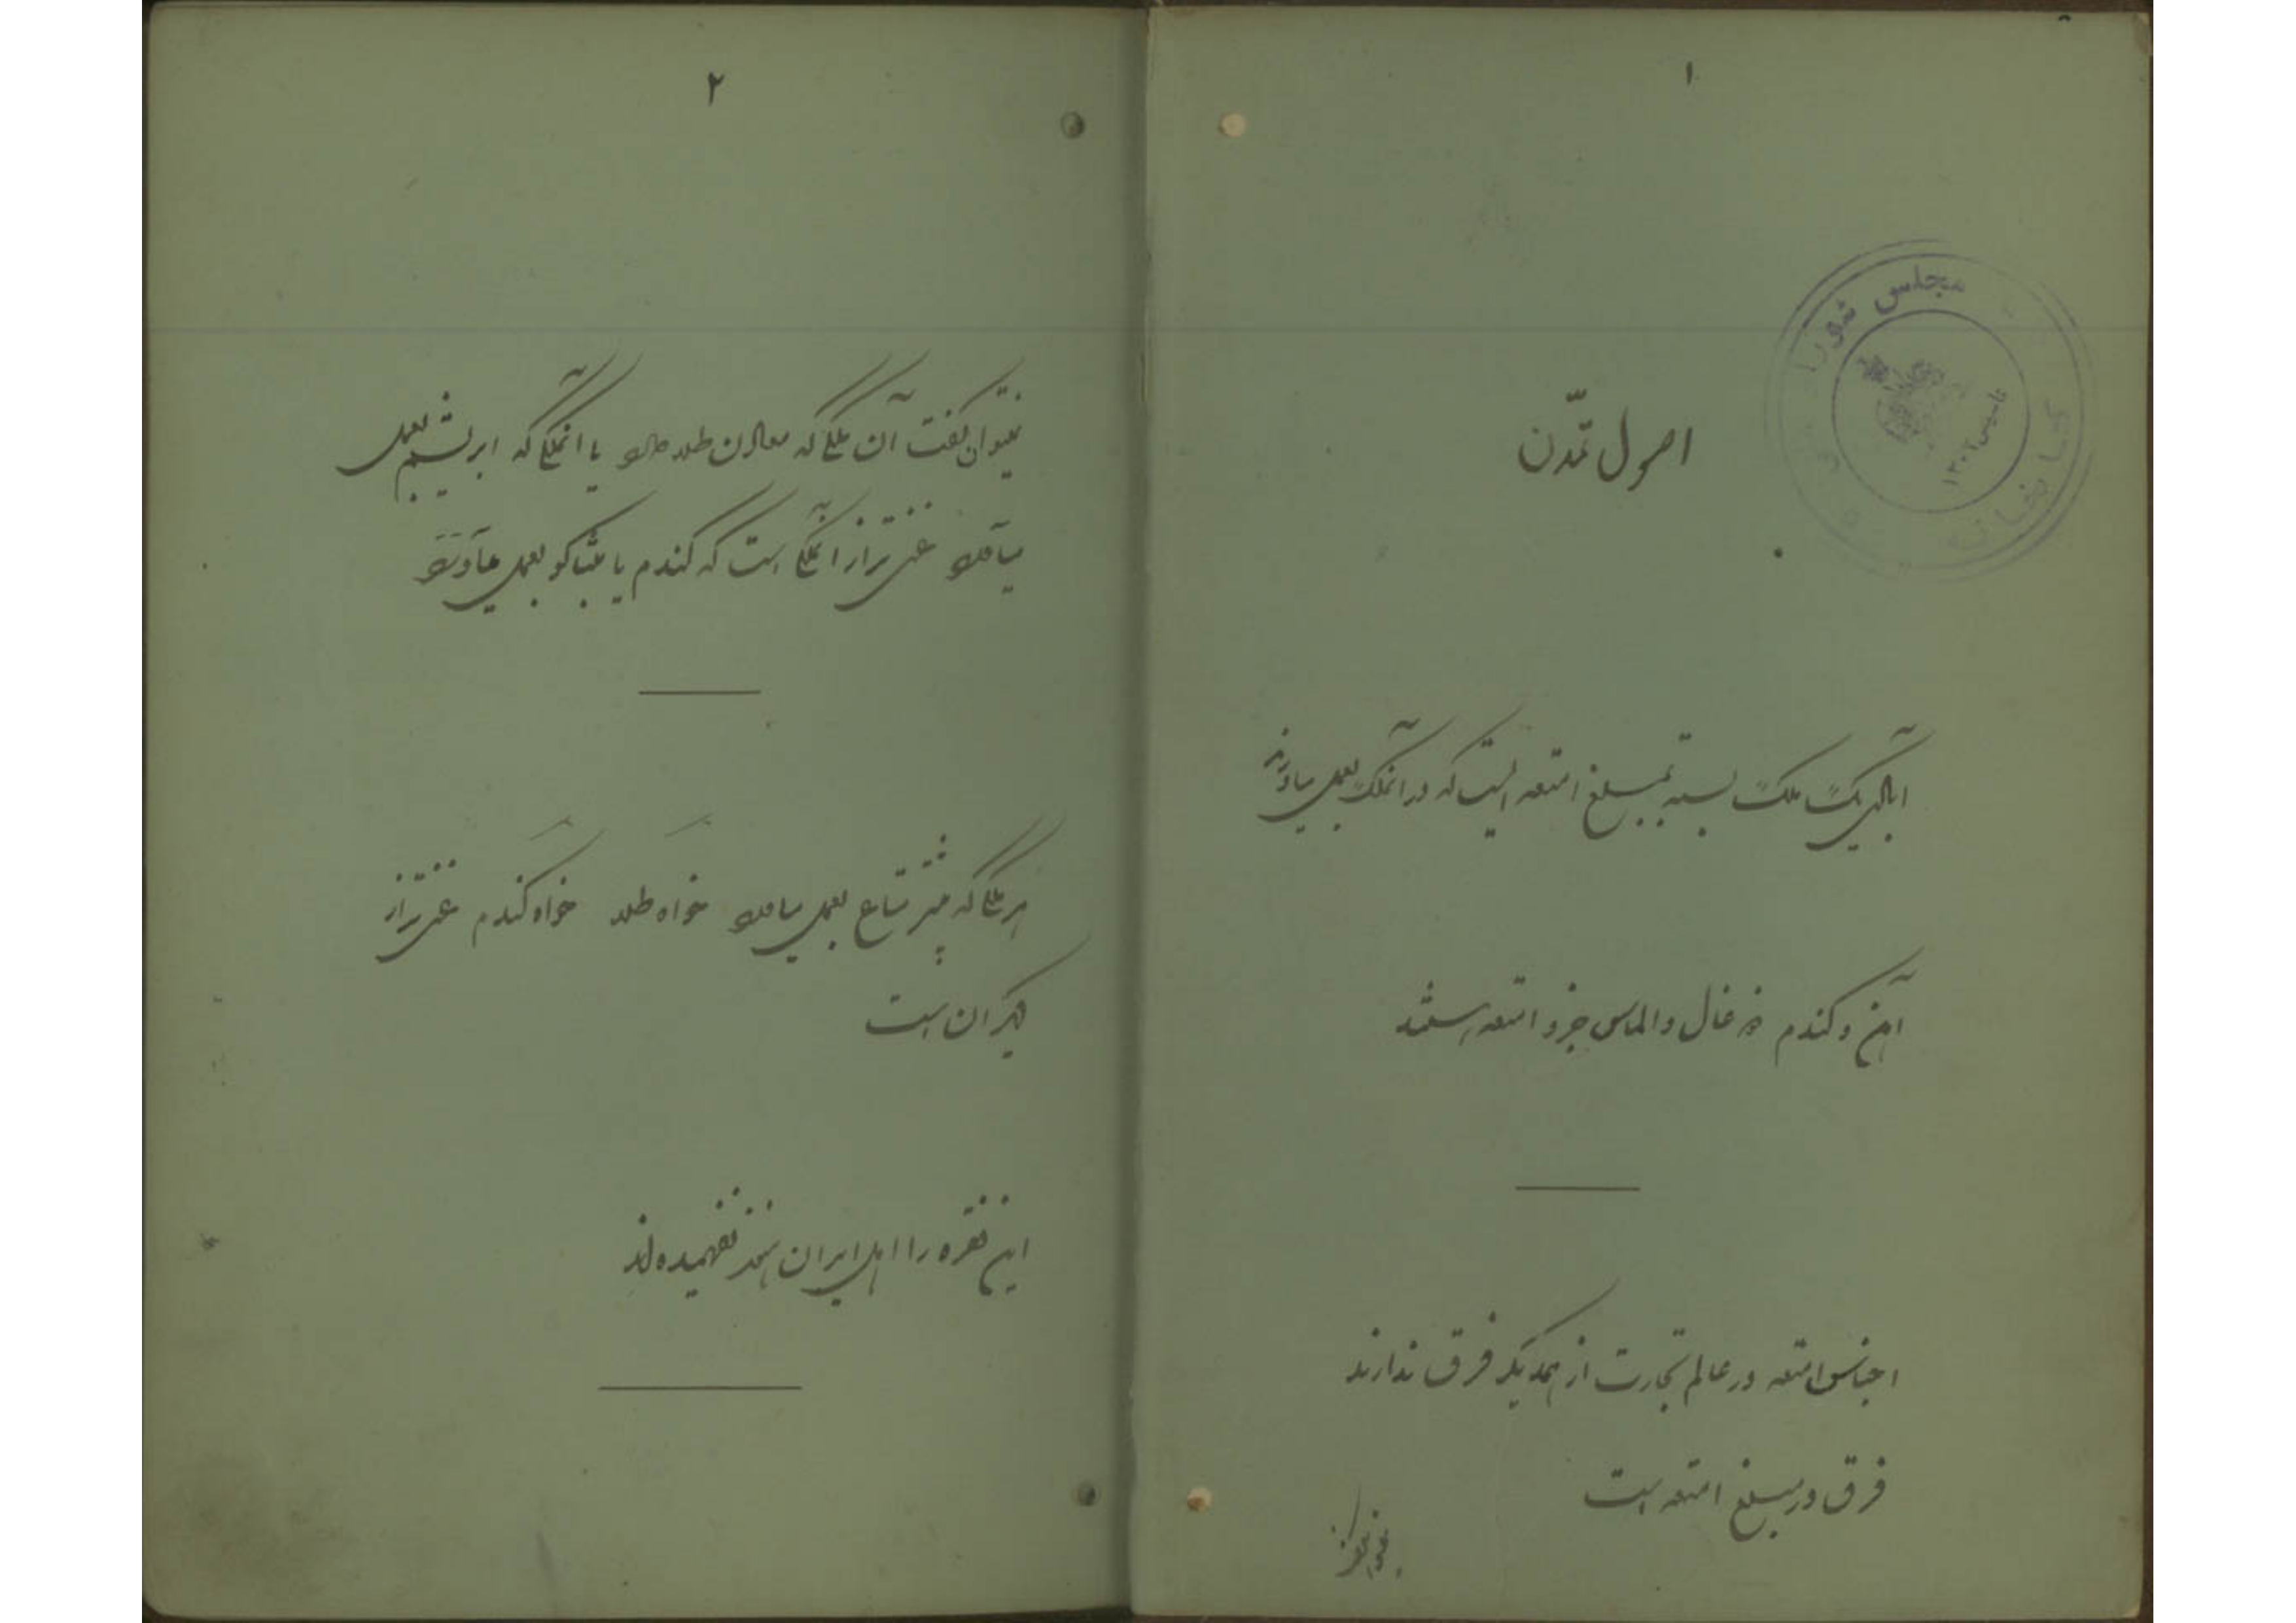 ۱
مجلس شورای
کتابخانه
تاسیس ۱۳۰۲
اصول تمدّن
آبادی یک ملک بسته بمبلغ امتعه ایست که در آنملک بعمل میاورند
آهن و گندم و ذغال و الماس جزو امتعه هستند
اجناس امتعه در عالم تجارت از همدیگر فرق ندارند
فرق در مبلغ امتعه است
۲
نمیتوان گفت آن ملکی که معادن طلا دارد یا آنملکی که ابریشم بعمل
میآورد غنی تر از آنملکی است که گندم یا تنباکو بعمل میآورد
هر ملکی که بیشتر متاع بعمل میاورد خواه طلا خواه گندم غنی تر از
دیگران است
این فقره را اهل ایران هنوز نفهمیده اند